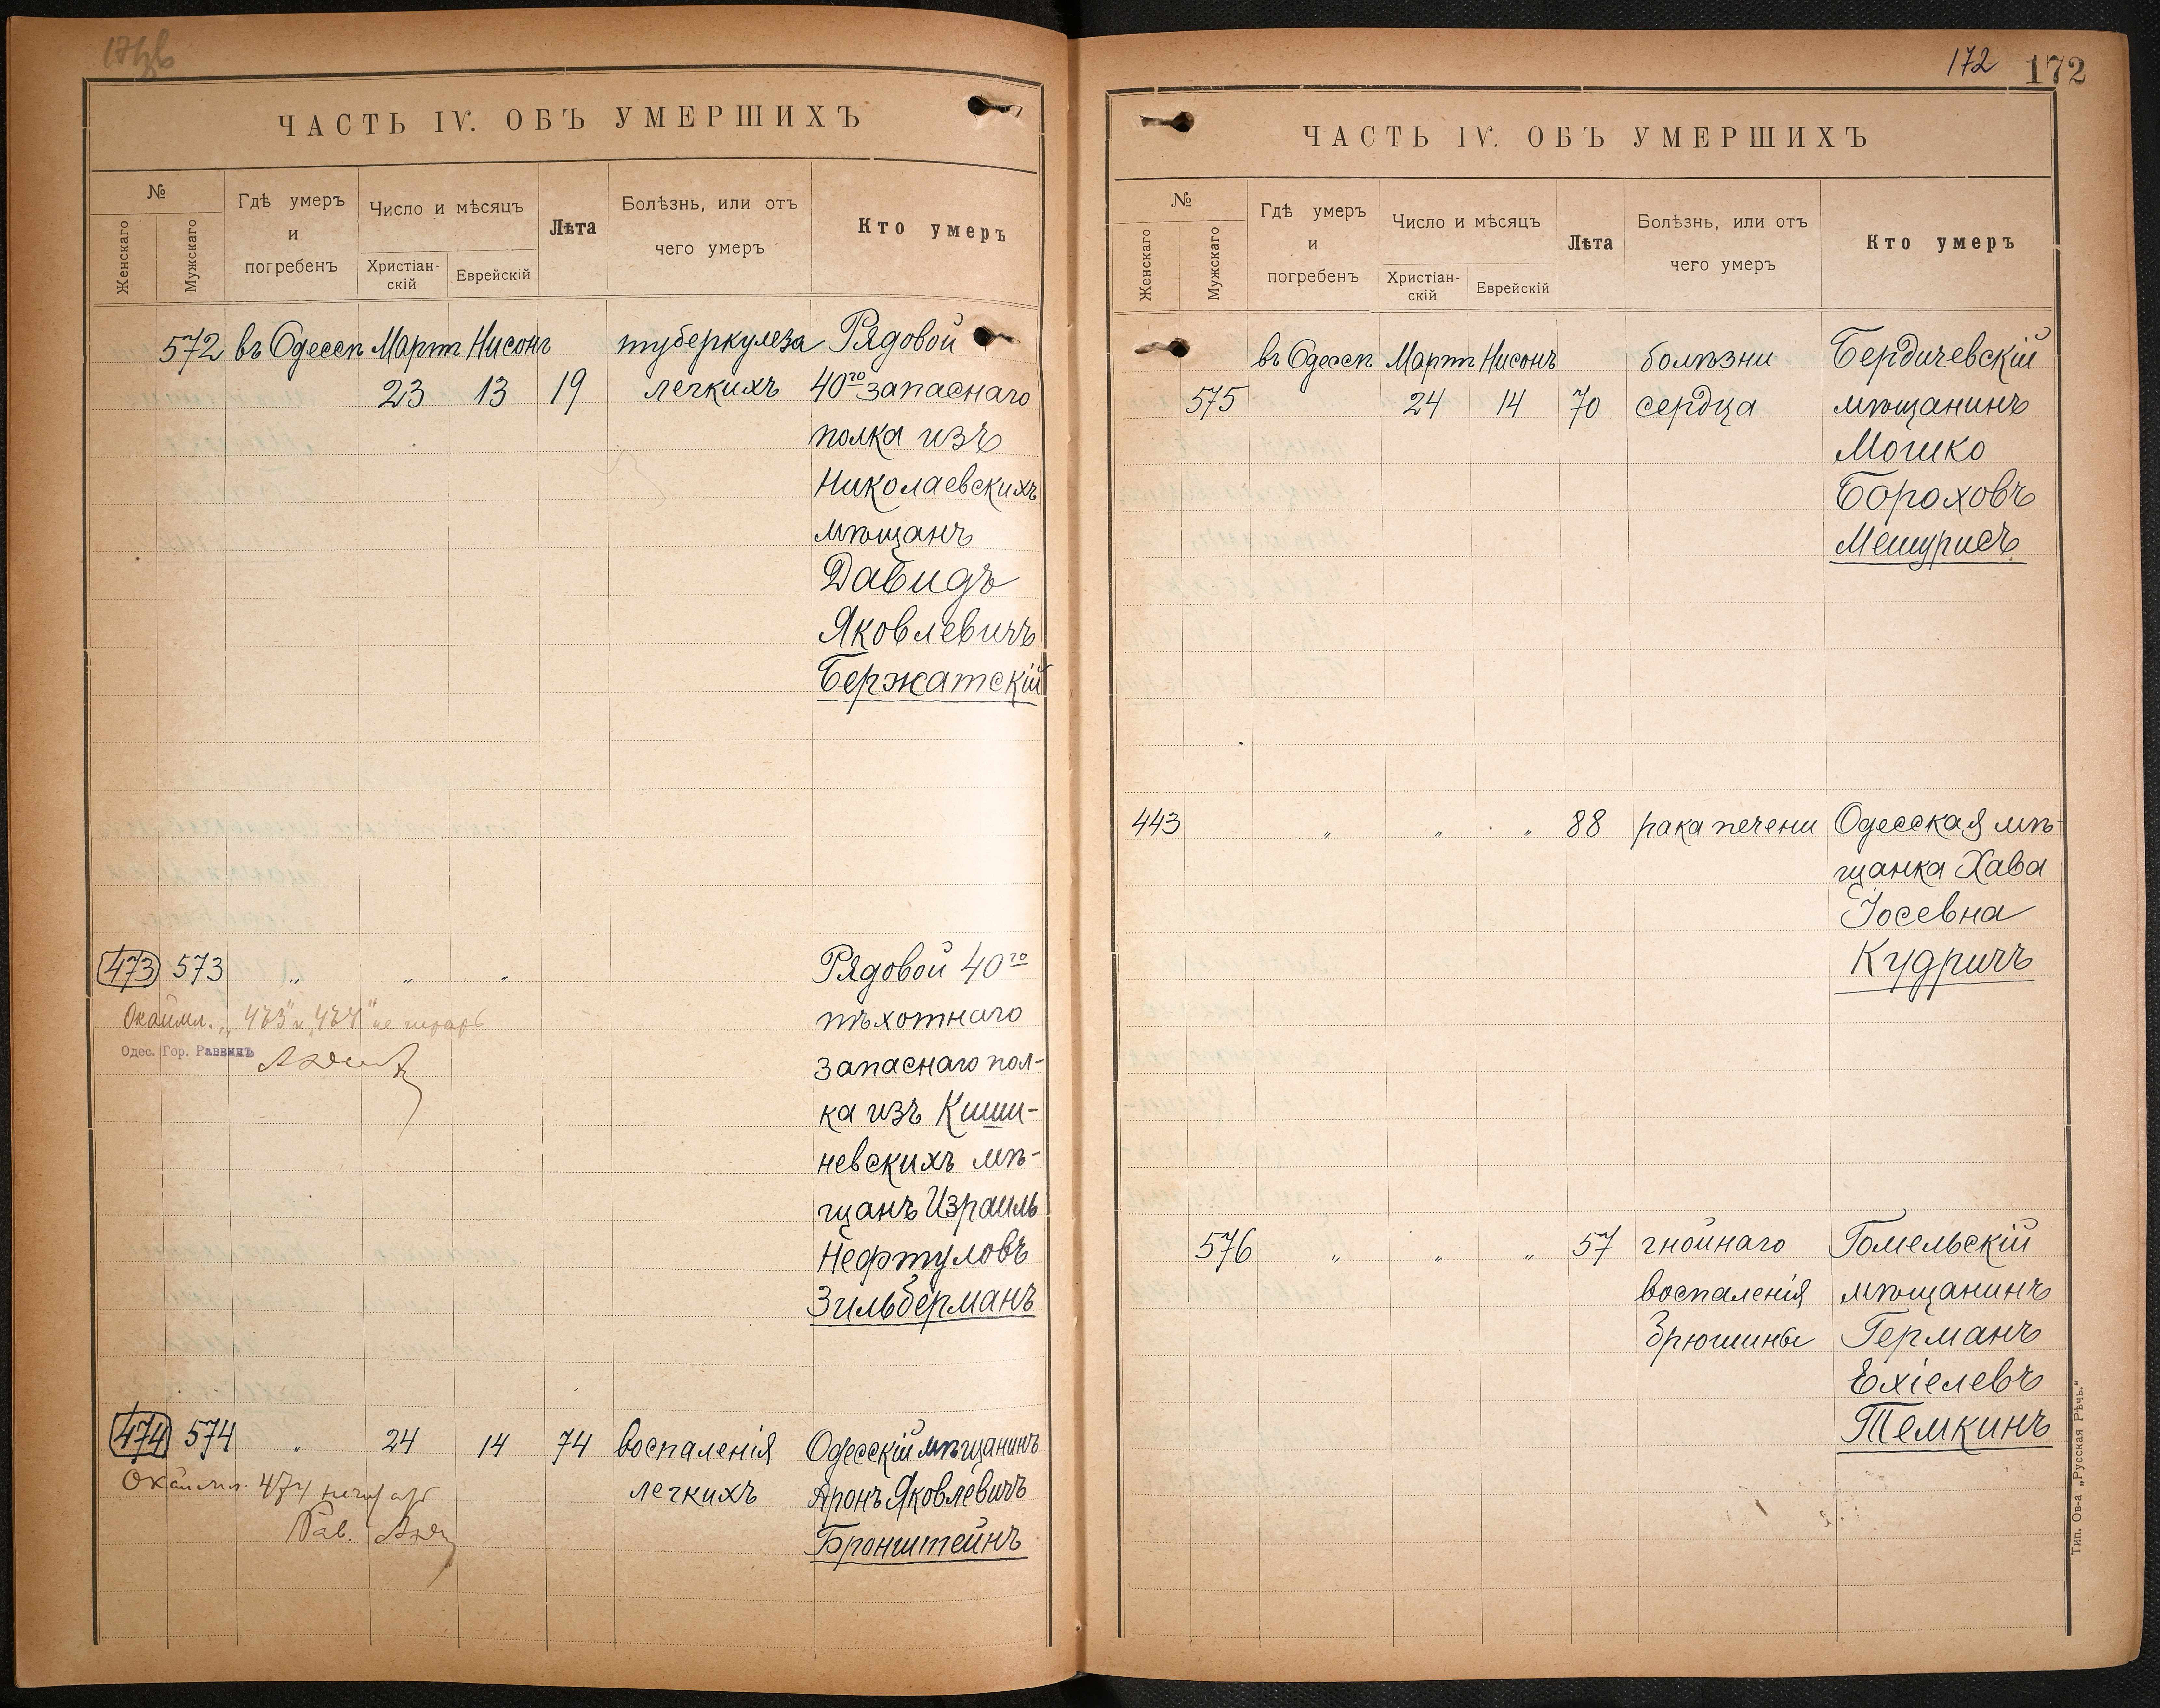 ЧАСТЬ IV. ОБЪ УМЕРШИХЪ
№
Женскаго
Мужскаго
Гдѣ умеръ
и
погребенъ
Число и мѣсяцъ
Христіан-
скій
Еврейскій
Лѣта
Болѣзнь, или отъ
чего умеръ
Кто умеръ
572 въ Одессѣ Март Нисонъ туберкулеза Рядовой
23 13 19 легкихъ 40го запаснаго
полка изъ
Николаевскихъ
мѣщанъ
Давидъ
Яковлевичъ
Бержатскій
473 573 „ „ „ Рядовой 40го
Окаймл. „473“ и „474“ не
пѣхотнаго
Одес. Гор. Раввинъ
запаснаго пол-
ка изъ Киши-
невскихъ мѣ-
щанъ Израиль
Нефтуловъ
Зильберманъ
474 574 „ 24 14 74 воспаленія Одесскій мѣщанинъ
Окаймл. 474
легкихъ Аронъ Яковлевичъ
Рав.
Бронштейнъ
172 172
ЧАСТЬ IV. ОБЪ УМЕРШИХЪ
№
Женскаго
Мужскаго
Гдѣ умеръ
и
погребенъ
Число и мѣсяцъ
Христіан-
скій
Еврейскій
Лѣта
Болѣзнь, или отъ
чего умеръ
Кто умеръ
въ Одессѣ Март Нисонъ болѣзни Бердичевскій
575 24 14 70 сердца мѣщанинъ
Мошко
Бороховъ
Мешурисъ
443 „ „ „ 88 рака печени Одесская мѣ-
щанка Хава
Іосевна
Кудричъ
576 „ „ „ 57 гнойнаго Гомельскій
воспаленія мѣщанинъ
брюшины Германъ
Ехіелевъ
Темкинъ
Тип. Ов-а „Русская Рѣчь.“